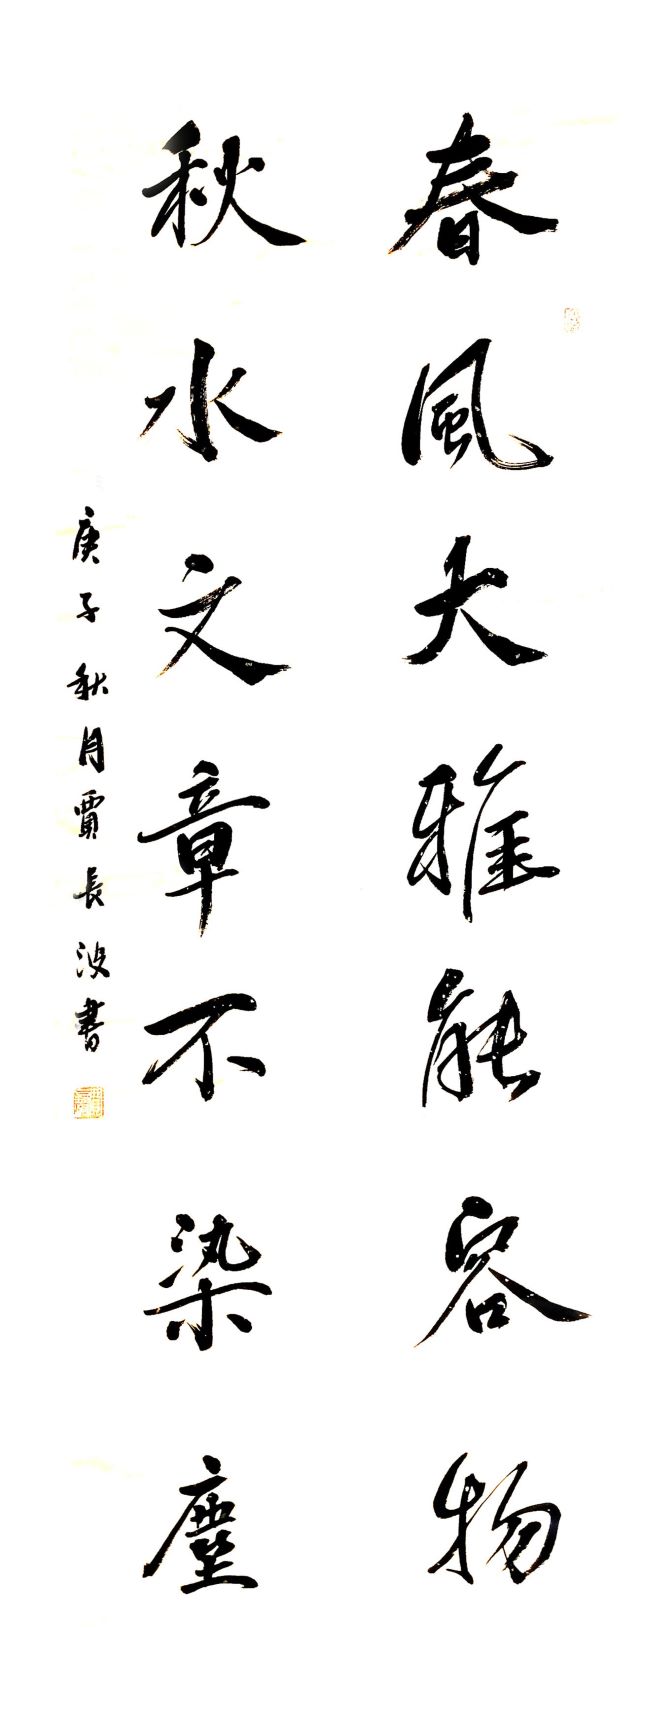 春風大雅能容物
秋水文章不染塵
庚子秋月賈長波書